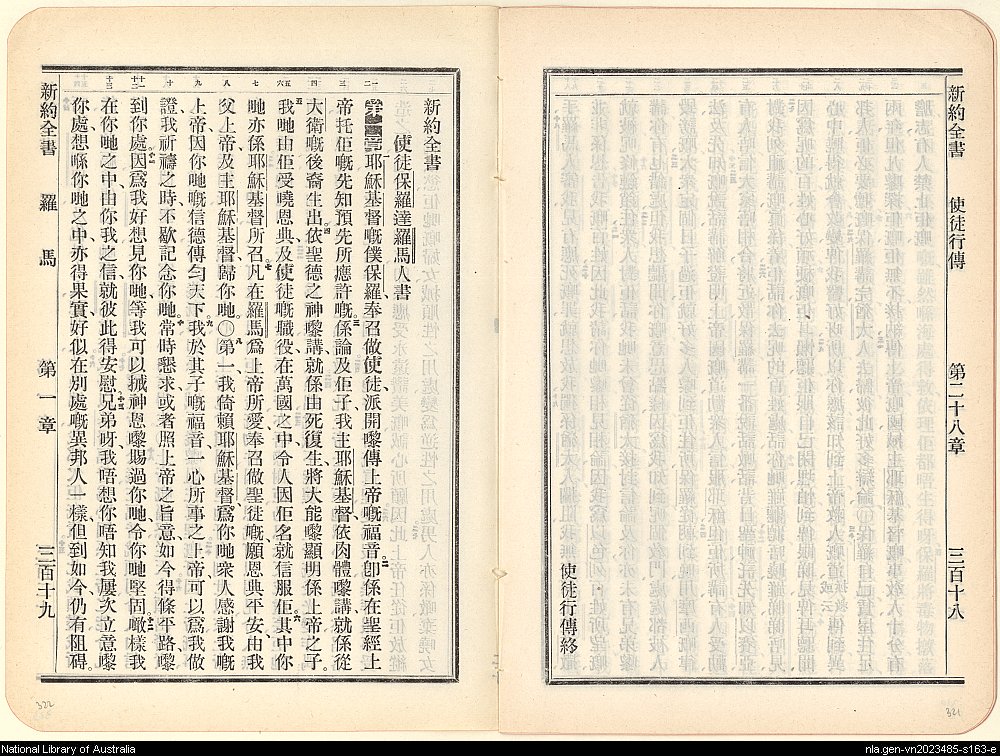 新約全書
使徒行傳
第二十八章
三百十八
使徒行傳終
新約全書
使徒保羅達羅馬人書
耶穌基督嘅僕保羅、奉召做使徒、派開嚟傳上帝嘅福音。卽係在聖經上
帝托佢嘅先知預先所應許嘅、係論及佢子我主耶穌基督、依肉體嚟講就係從
大衛嘅後裔生出、依聖德之神嚟講就係由死復生、將大能嚟顯明係上帝之子。
我哋由佢受嘵恩典、及使徒嘅職役、在萬國之中、令人因佢名就信服佢、其中你
哋亦係耶穌基督所召、凡在羅馬爲上帝所愛奉召做聖徒嘅、願恩典與平安由我
父上帝、及主耶穌基督歸你哋。〇第一我倚賴耶穌基督、爲你哋衆人感謝我嘅
上帝、因你哋嘅信德傳勻天下、我於其子嘅福音一心所事之上帝、可以爲我做
證、我祈禱之時、不歇記念你哋、常時懇求或者照上帝之旨意、如今得條平路嚟
到你處、因爲我好想見你哋、等我可以搣神恩嚟賜過你哋、令你哋堅固、噉樣我
在你哋之中、由你我之信、就彼此得安慰、兄弟呀、我唔想你唔知、我屢次立意嚟
你處、想喺你哋之中、亦得果實、好似在別處嘅異邦人一樣、但到如今、仍有阻碍。
新約全書
羅馬
第一章
三百十九
322
321
National Library of Australia
nla.gen-vn2023485-s163-e